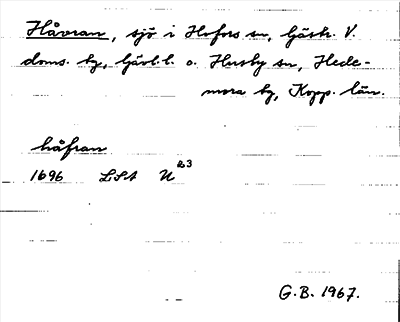 Håvran, sjö i Hofors sn, Gästr. V.
doms. hg, Gävl.l. o. Husby sn, Hede-
mora hg, Kopp. län.
håfran
1696 LSA U 23
G.B. 1967.